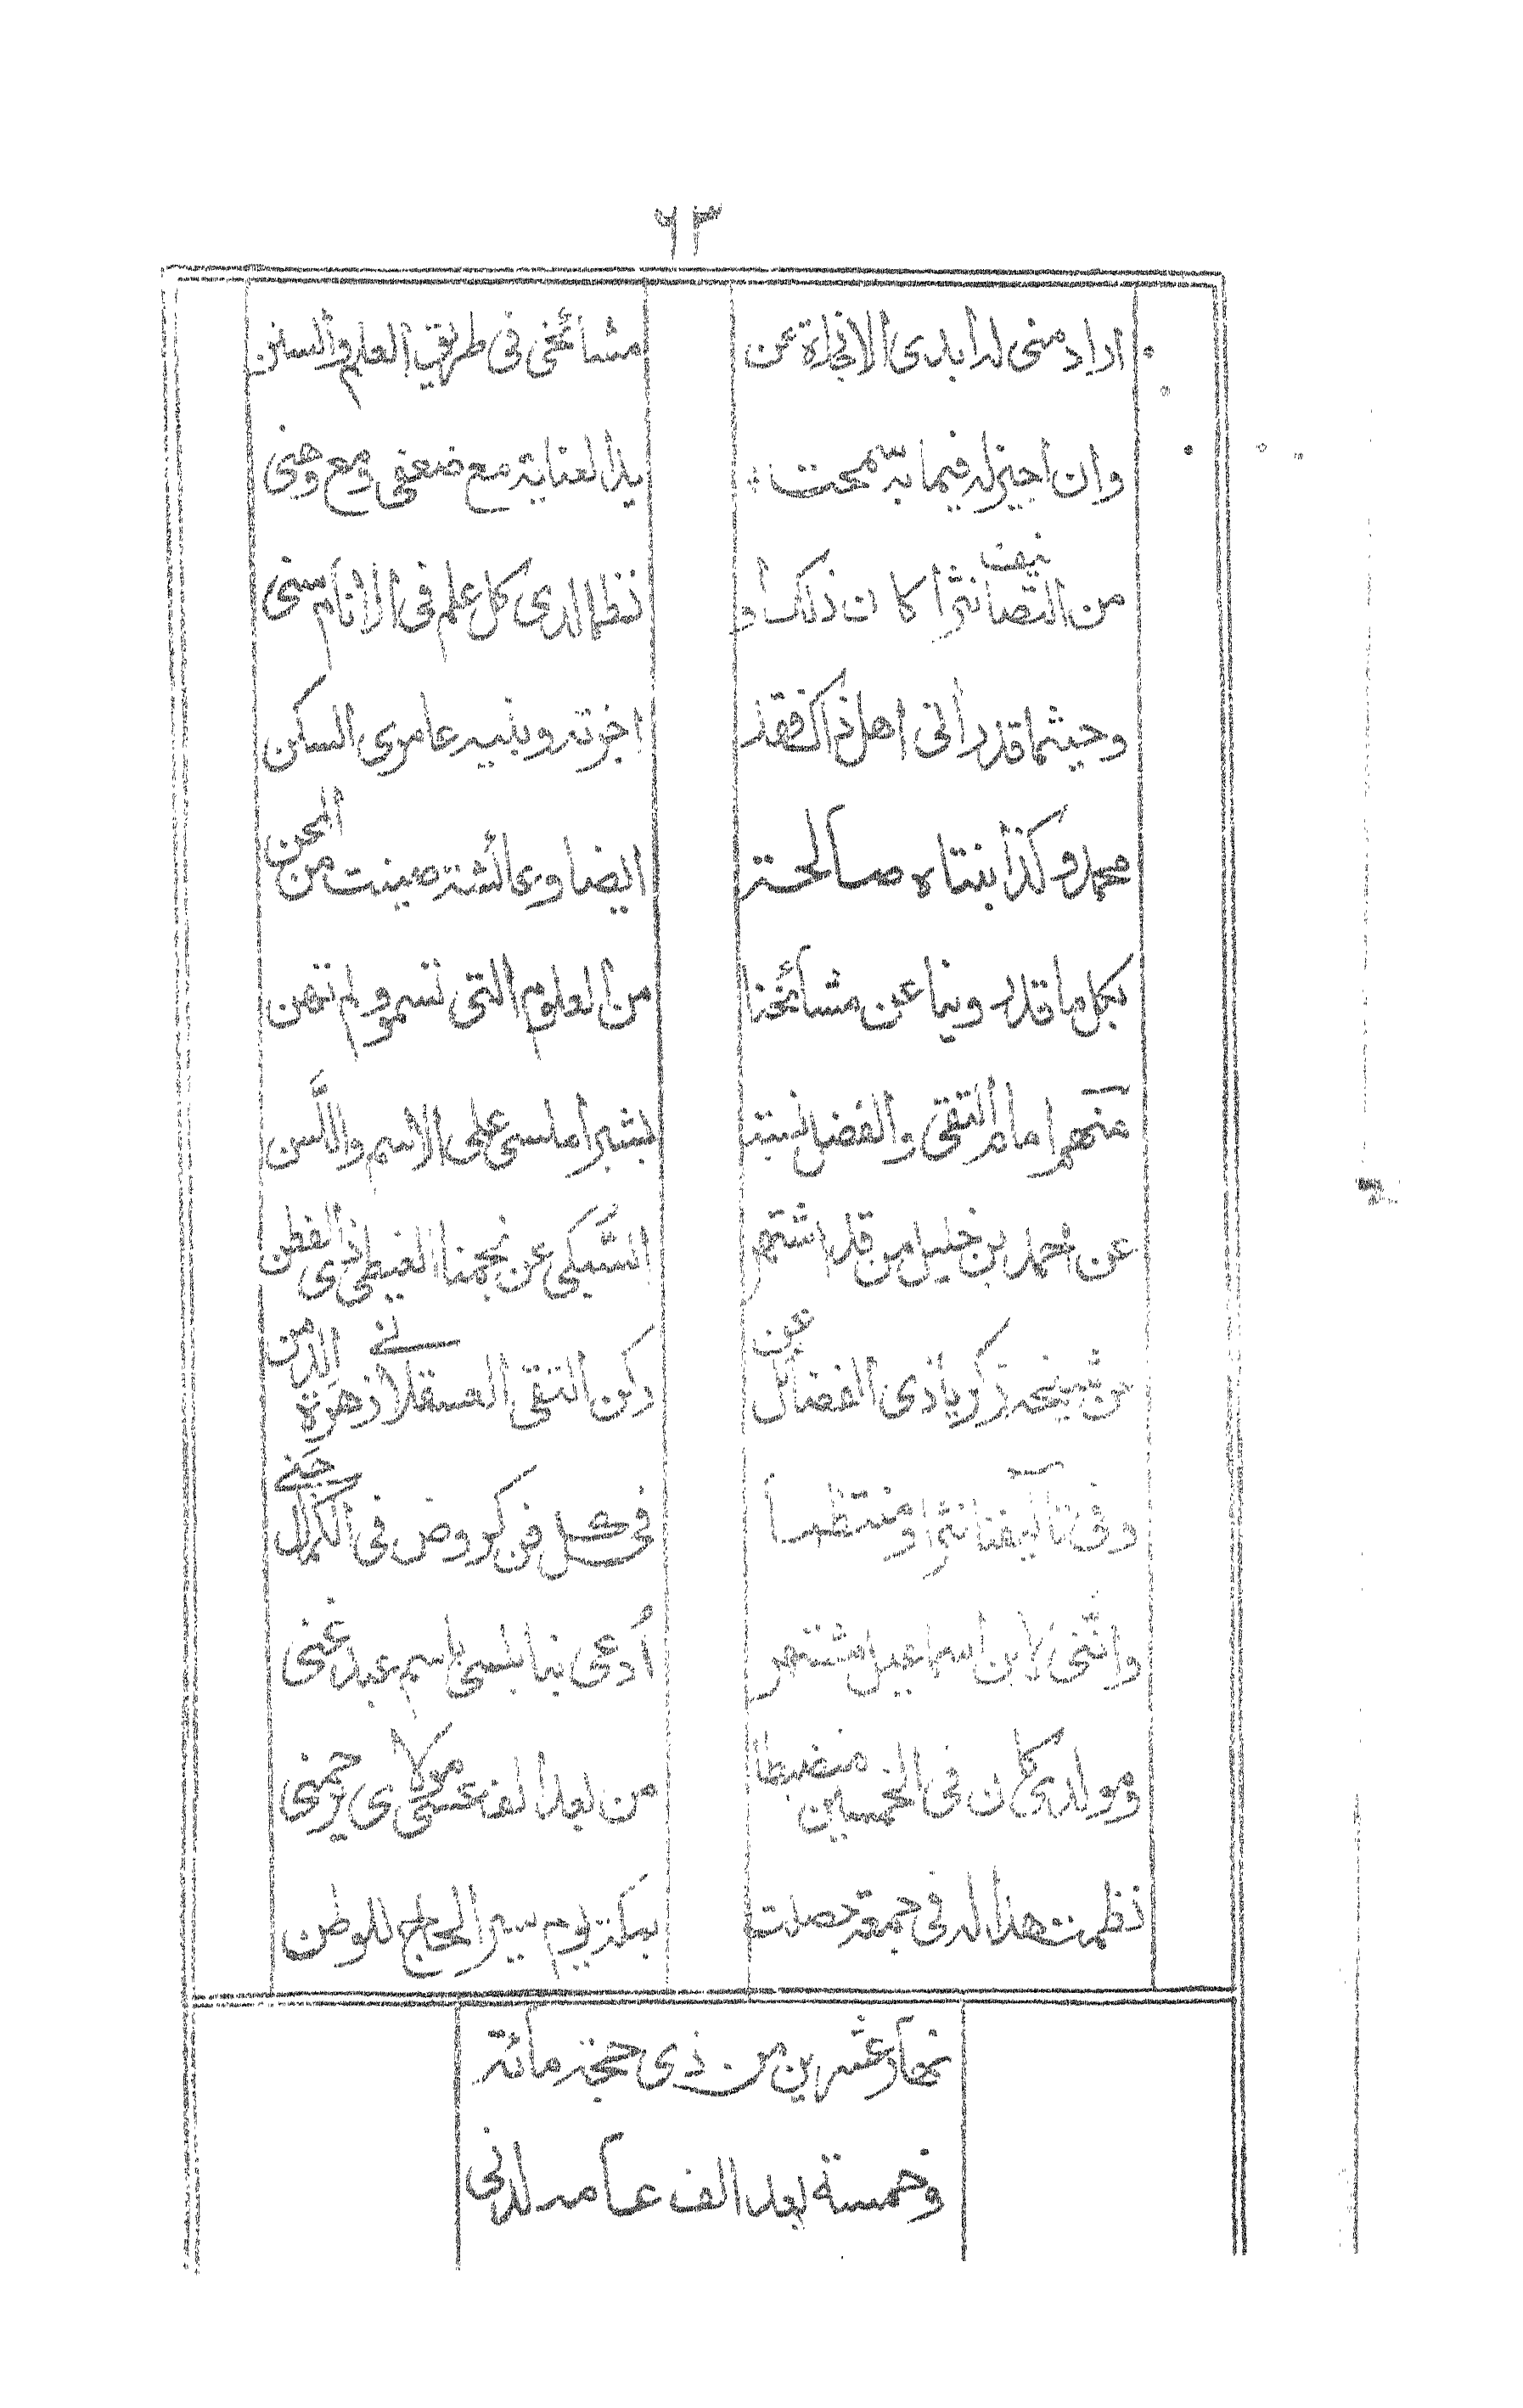 ٦٣
اراد منى له ابدى الاجازة عن
مشائخى فى طريق العلم والسنن
وان اجيز له فيما به سمحت
يد العناية مع ضعفى ومع وهنى
من التصانيف نثرا كان ذلك او
نظما لدى كل علم فى الانام سنى
وحيثما قد رأنى اهل ذاك فقد
اجزته وبنيه عامرى السكن
محمد وكذا بنتاه صالحة
ايضا وعائشة صينت من المحن
بكل ما قد روينا عن مشائخنا
من العلوم التى تسمو ولم تهن
منهم امام التقى والفضل نسبته
بشبراملسى على الاسم واللسن
عن احمد بن خليل من قد اشتهر
السبكى عن نجمنا الغيطى ذى الفطن
عن شيخه زكريا ذى الفضائل عن
ركن التقى العسقلانى زهرة الدمن
وفى تآليفنا نثرا ومنتظما
فى كل فن كروض فى الكمال جنى
واننى لابن اسماعيل مشتهر
ادعى بنابلسى باسم عبد غنى
ومولدى كان فى الخمسين منضبطا
من بعد الف عسى مولاى يرحمنى
نظمت هذا له فى جمعة حصلت
ببكة يوم سير الحاج للوطن
نهار عشرين من ذى حجة مائة
وخمسة بعد الف عامه لدنى